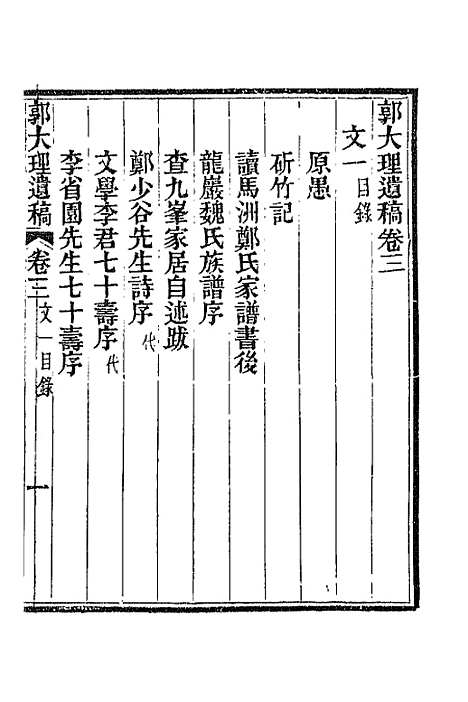 郭大理遺稿卷三
文一目錄
原愚
斫竹記
讀馬洲鄭氏家譜書後
龍巖魏氏族譜序
查九峯家居自述跋
鄭少谷先生詩序代
文學李君七十壽序代
李省園先生七十壽序
郭大理遺稿 卷三 文一目錄 一